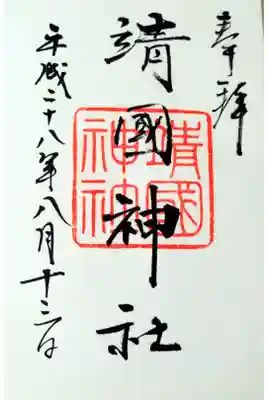 奉拝
靖國神社
靖國神社
平成二十八年八月十三日